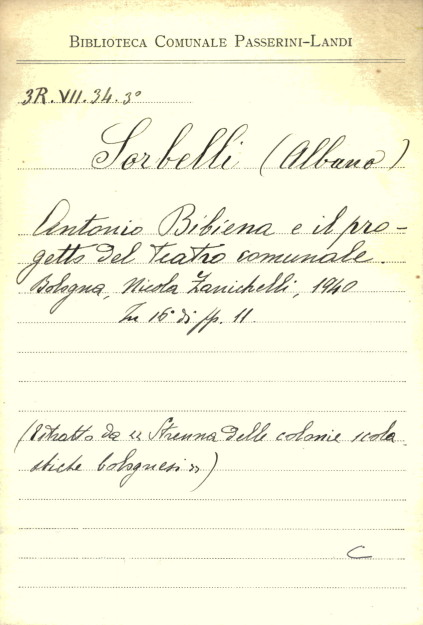 BIBLIOTECA COMUNALE PASSERINI-LANDI
3R. VII. 34. 3°
Sorbelli (Albano)
Antonio Bibiena e il pro-
getto del Teatro comunale.
Bologna, Nicola Zanichelli, 1940
In 16° di pp. 11.
(Estratto da « Strenna delle colonie scola
stiche bolognesi »)
C